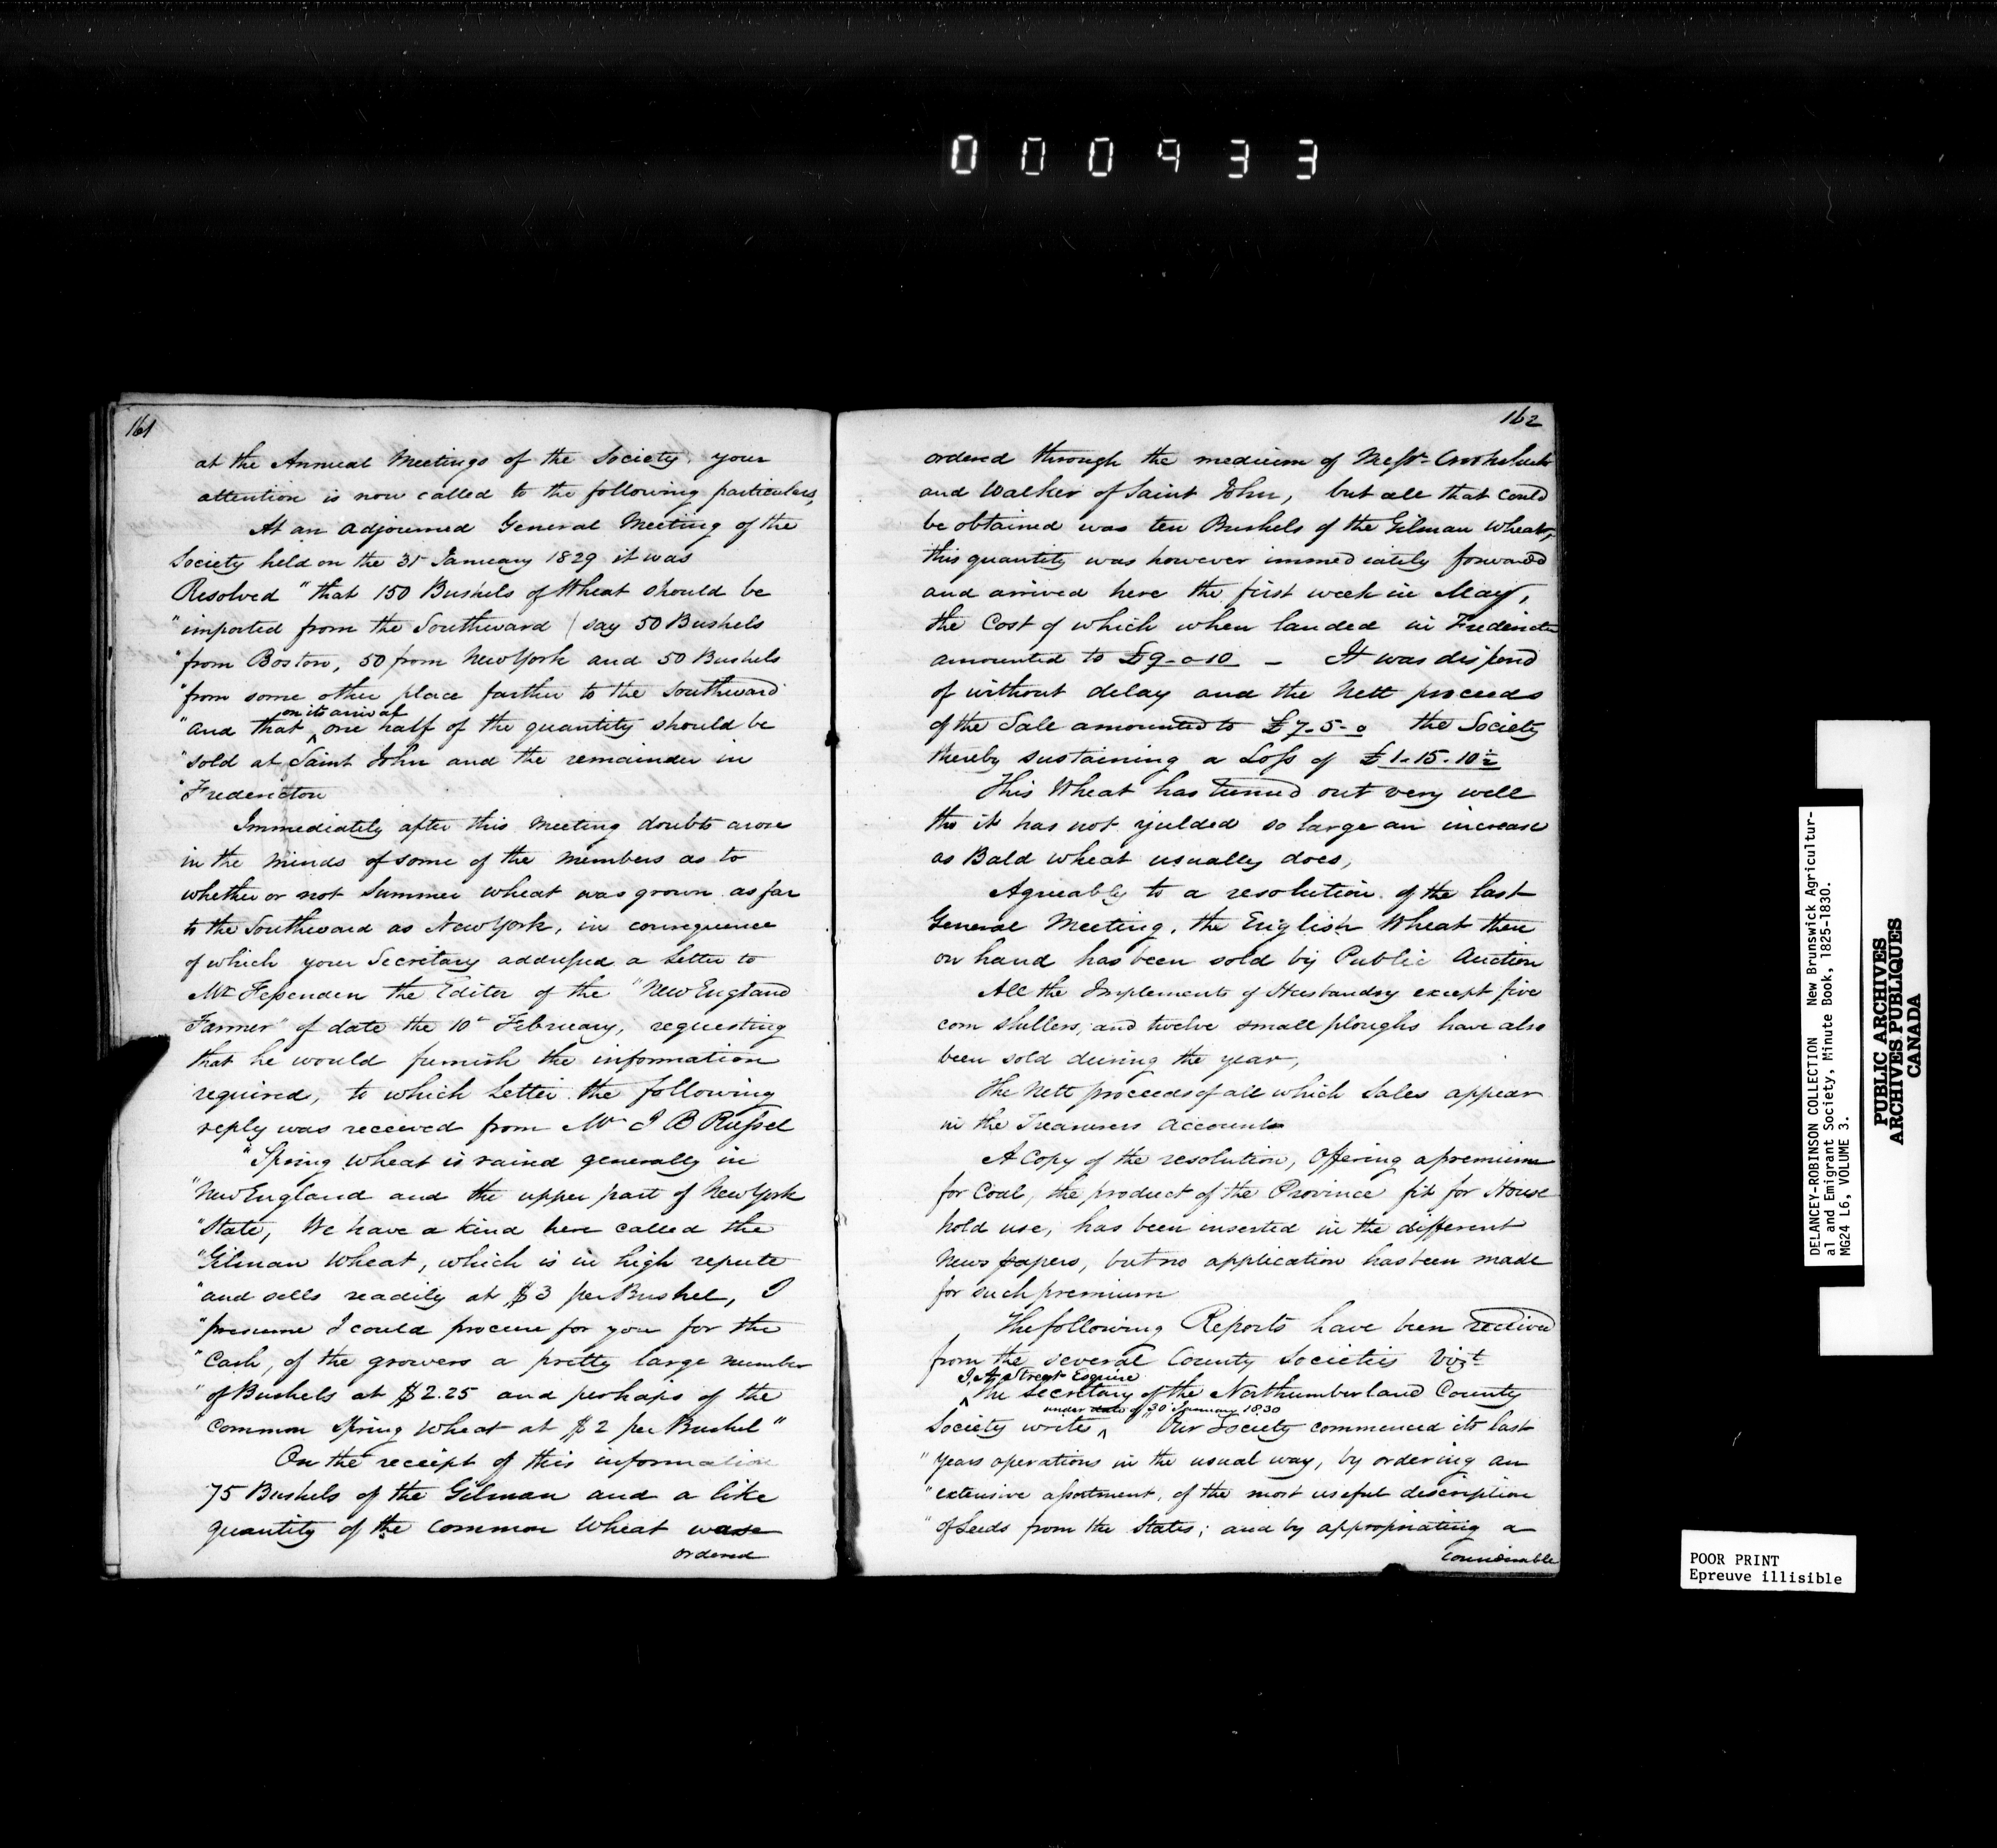 000933
161
at the Annual Meetings of the Society. your
attention is now called to the following particulars,
At an adjourned General Meeting of the
Society held on the 31 January 1829 it was
Resolved "that 150 Bushels of Wheat should be
"imported from the Southward (say 50 Bushels
"from Boston, 50 from New York and 50 Bushels
"from some other place farther to the Southward
on its arrival
"and that ^ one half of the quantity should be
"sold at Saint John and the remainder in
"Fredericton
Immediately after this Meeting doubts arose
in the minds of some of the members as to
whether or not Summer wheat was grown as far
to the Southward as New York, in consequence
of which your Secretary addressed a Letter to
Mr Fessenden the Editor of the "New England
Farmer" of date the 10th February, requesting
that he would furnish the information
required, to which Letter the following
reply was received from Mr J B Russel
"Spring wheat is raisd generally in
"New England and the upper part of New York
"State, We have a kind here called the
"Gilman Wheat, which is in high repute
"and sells readily at $3 per Bushel, I
"presume I could procure for you for the
"Cash, of the growers a pretty large number
"of Bushels at $2.25 and perhaps of the
"common Spring Wheat at $2 per Bushel"
On the receipt of this information
75 Bushels of the Gilman and a like
quantity of the common Wheat were
ordered
162
ordered through the medium of Messrs Crookshank
and Walker of Saint John, but all that could
be obtained was ten Bushels of the Gilman Wheat,
this quantity was however immediately forwarded
and arrived here the first week in May,
the Cost of which when landed in Fredericton
amounted to £9-0-10 - It was disposed
of without delay and the Nett proceeds
of the Sale amounted to £7-5-0 the Society
thereby sustaining a Loss of £1-15-10½
This Wheat has turned out very well
tho it has not yielded so large an increase
as Bald wheat usually does,
Agreeably to a resolution of the last
General Meeting, the English Wheat then
on hand has been sold by Public Auction
All the Implements of Husbandry except five
corn shellers, and twelve small ploughs have also
been sold during the year,
The Nett proceeds of all which Sales appear
in the Treasurers Accounts
A Copy of the resolution, Offering a premium
for Coal, the product of the Province fit for House
hold use, has been inserted in the different
News papers, but no application has been made
for such premium
The following Reports have been received
from the several County Societies Vizt
J. A. Street Esquire
^ The Secretary of the Northumberland County
under date of 30 January 1830
Society writes ^ "Our Society commenced its last
"years operations in the usual way, by ordering an
"extensive assortment, of the most useful description
"of Seeds from the States; and by appropriating a
considerable
DELANCEY-ROBINSON COLLECTION New Brunswick Agricultur-
al and Emigrant Society, Minute Book, 1825-1830.
MG24 L6, VOLUME 3.
PUBLIC ARCHIVES
ARCHIVES PUBLIQUES
CANADA
POOR PRINT
Epreuve illisible